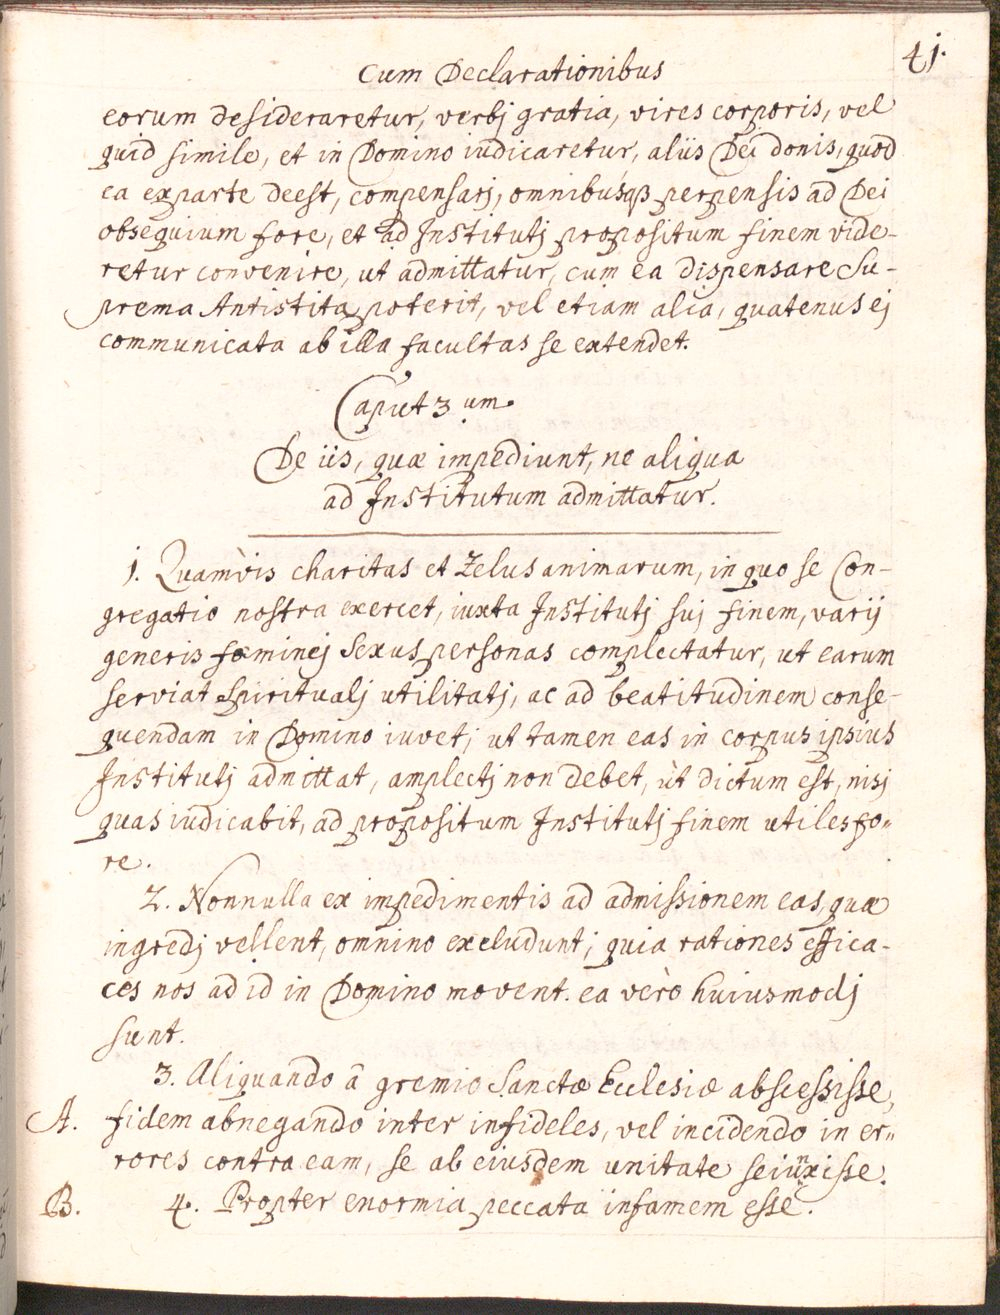 41.
Cum Declarationibus
eorum desideraretur, verbj gratia, vires corporis, vel
quid simile, et in Domino iudicaretur, aliis Dei donis, quod
ea ex parte deest, compensarj, omnibúsqß perpensis ad Dei
obsequium fore, et ad Institutj propositum finem vide-
retur convenire, ut admittatur, cum ea dispensare Su-
prema Antistita poterit, vel etiam alia, quatenus ej
communicata ab illa facultas se extendet.
Caput 3.um
De iis, quæ impediunt, ne aliqua
ad Institutum admittatur.
1. Quamvis charitas et Zelus animarum, in quo se Con-
gregatio nostra exercet, iuxta Institutj suj finem, varij
generis fœminej Sexus personas complectatur, ut earum
serviat Spiritualj utilitatj, ac ad beatitudinem conse-
quendam in Domino iuvet; ut tamen eas in corpus ipsius
Institutj admittat, amplectj non debet, ùt dictum est, nisj
quas iudicabit, ad propositum Institutj finem utiles fo=
re.
2. Nonnulla ex impedimentis ad admissionem eas, quæ
ingredj vellent, omnino excludunt; quia rationes effica-
ces nos ad id in Domino movent. ea vèro huiusmodj
sunt.
3. Aliquando â gremio Sanctæ Ecclesiæ abscessisse,
A. fidem abnegando inter infideles, vel incidendo in er=
rores contra eam, se ab eiusdem unitate seiūxisse.
B. 4. Propter enormia peccata infamem esse.